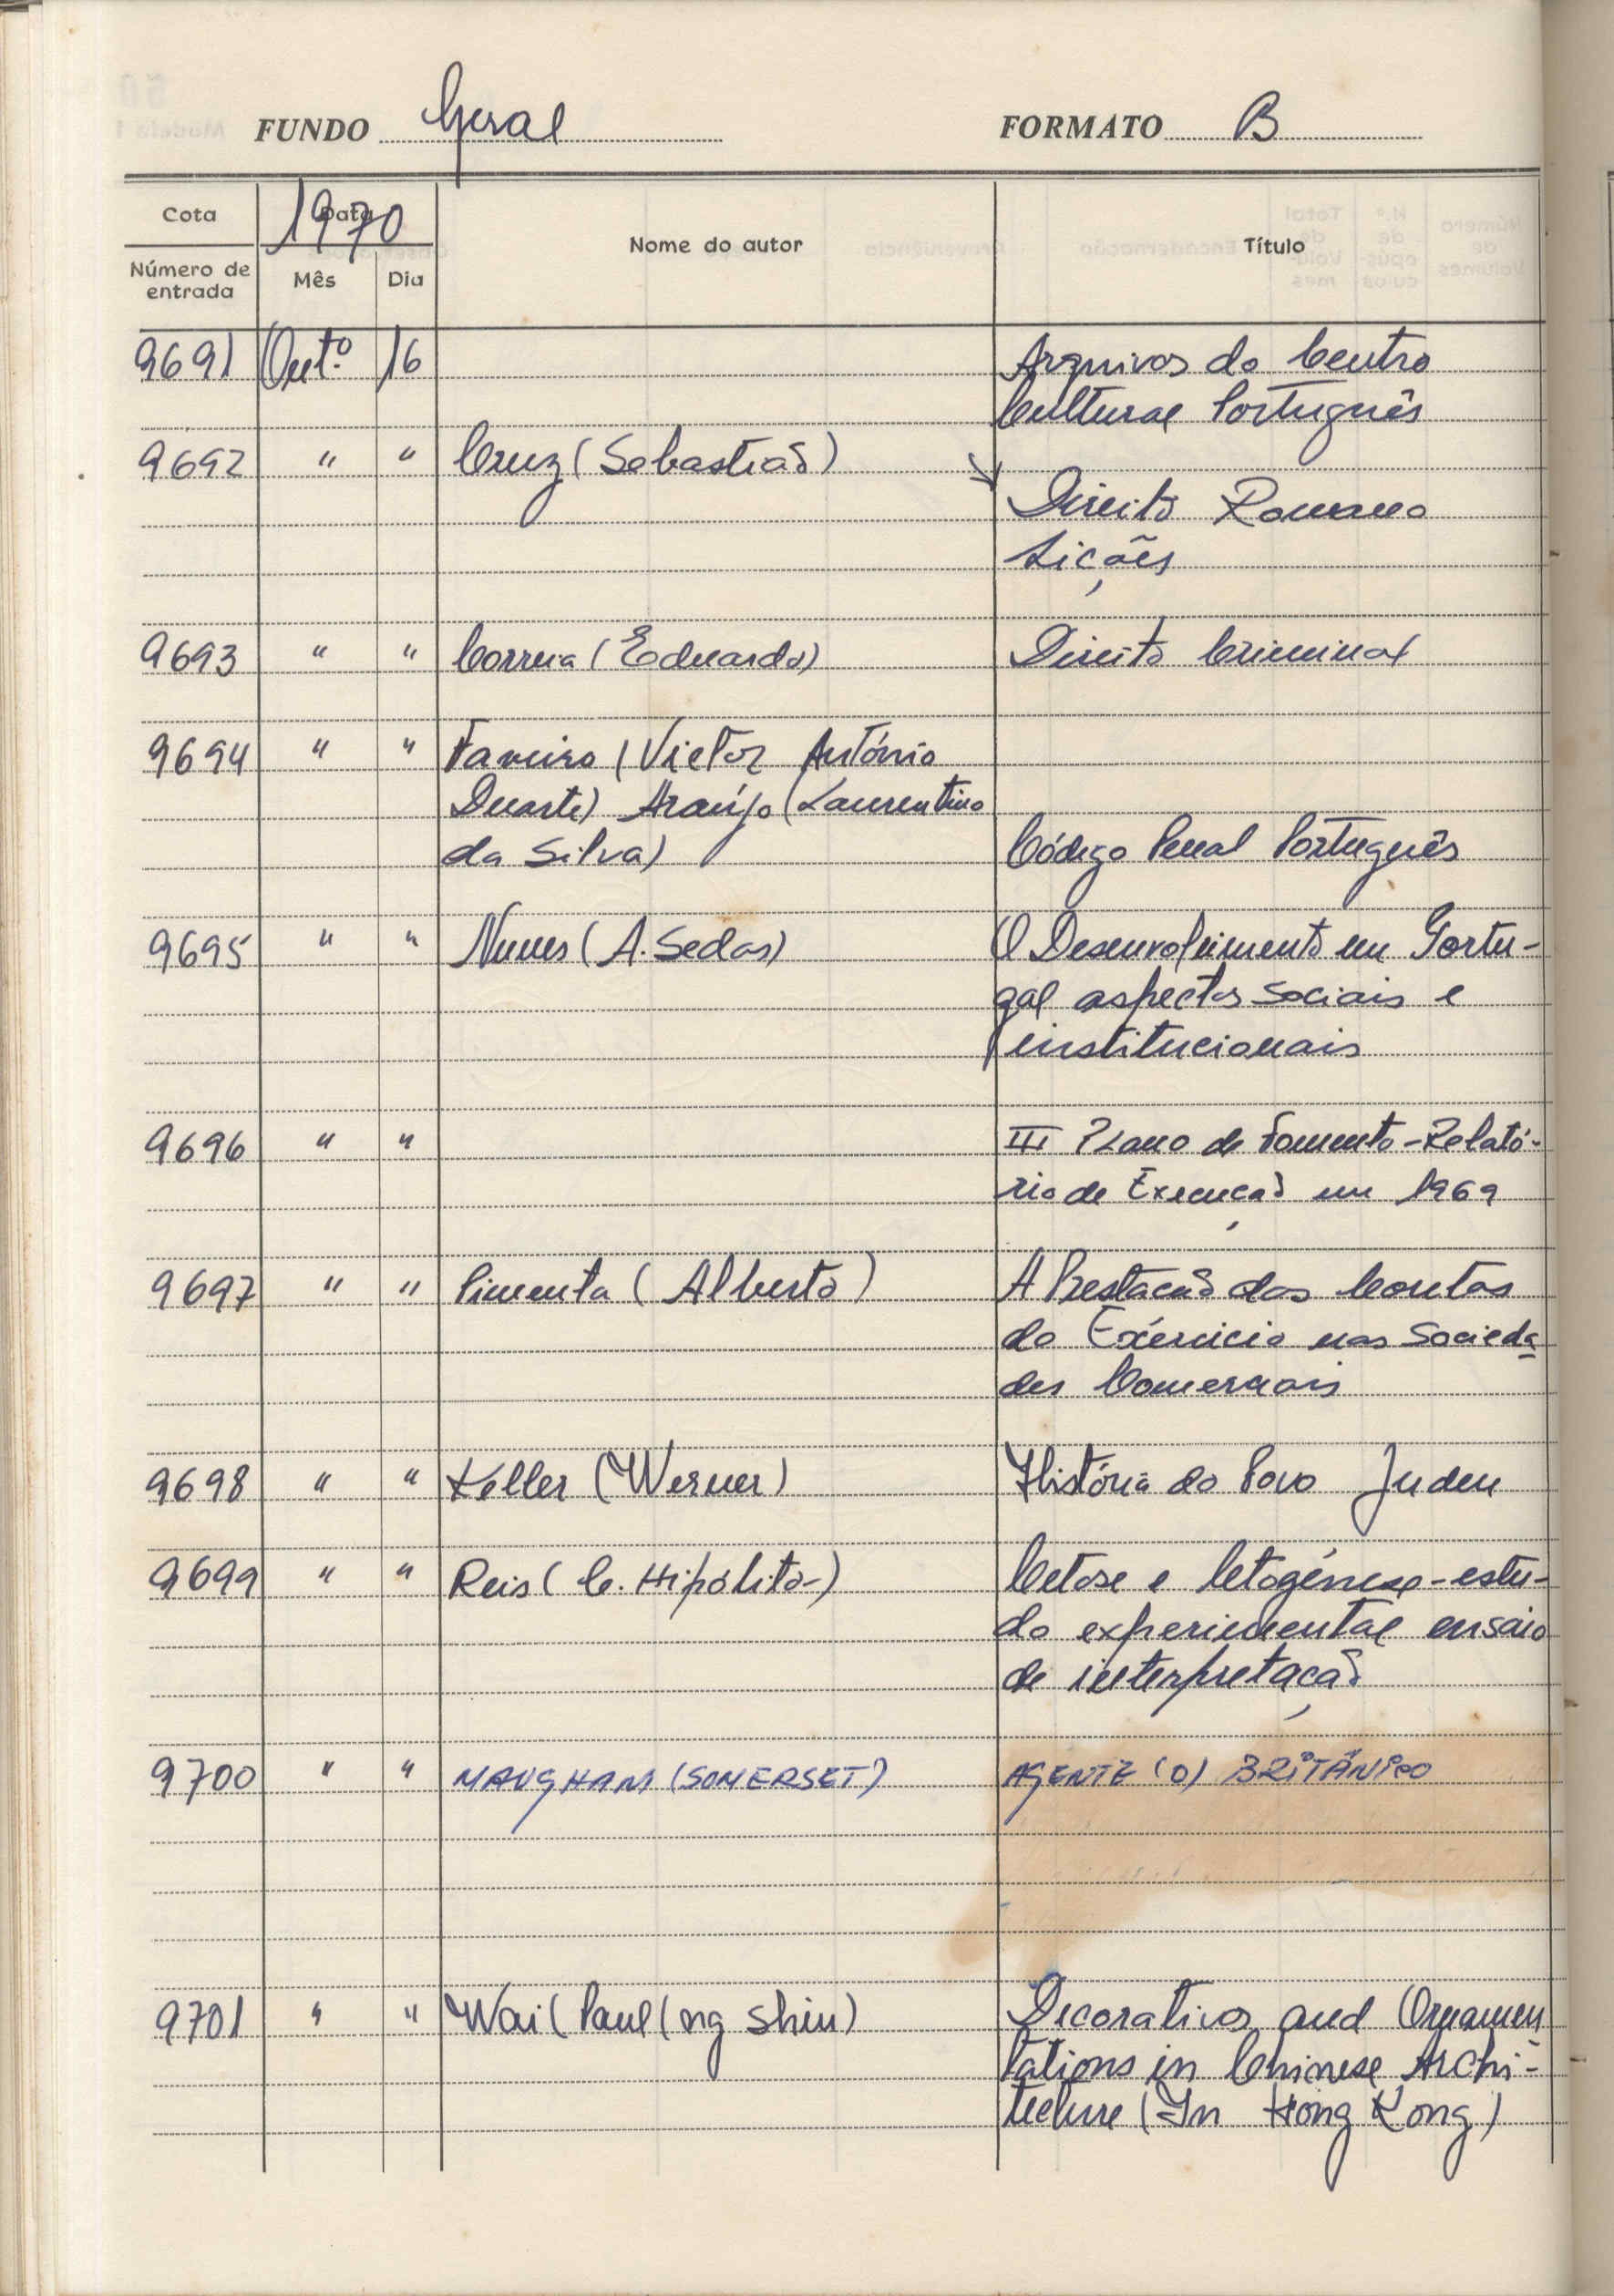 FUNDO Geral FORMATO B
Cota 1970 Data Nome do autor Título
Número de entrada Mês Dia
9691 Outº. 16 Arquivos do Centro
Cultural Português
9692 " " Cruz (Sebastião)
Direito Romano
Lições
9693 " " Correia (Eduardo) Direito Criminal
9694 " " Faveiro (Victor António
Duarte) Araújo (Laurentino
da Silva) Código Penal Português
9695 " " Nunes (A. Sedas) O Desenvolvimento em Portu-
gal aspectos sociais e
institucionais
9696 " " III Plano de Fomento-Relató-
rio de Execução em 1969
9697 " " Pimenta (Alberto) A Prestacão das Contas
do Exércicio nas Socieda
des Comerciais
9698 " " Keller (Werner) História do Povo Judeu
9699 " " Reis (C. Hipólito-) Cetose e Cetogénese-estu-
do experimental ensaio
de interpretação
9700 " " MAUGHAM (SOMERSET) AGENTE (O) BRITÂNICO
9701 " " Wai (Paul (ng Shiu) Decorativos and Ornamen
tations in Chinese Archi-
tecture (In Hong Kong)